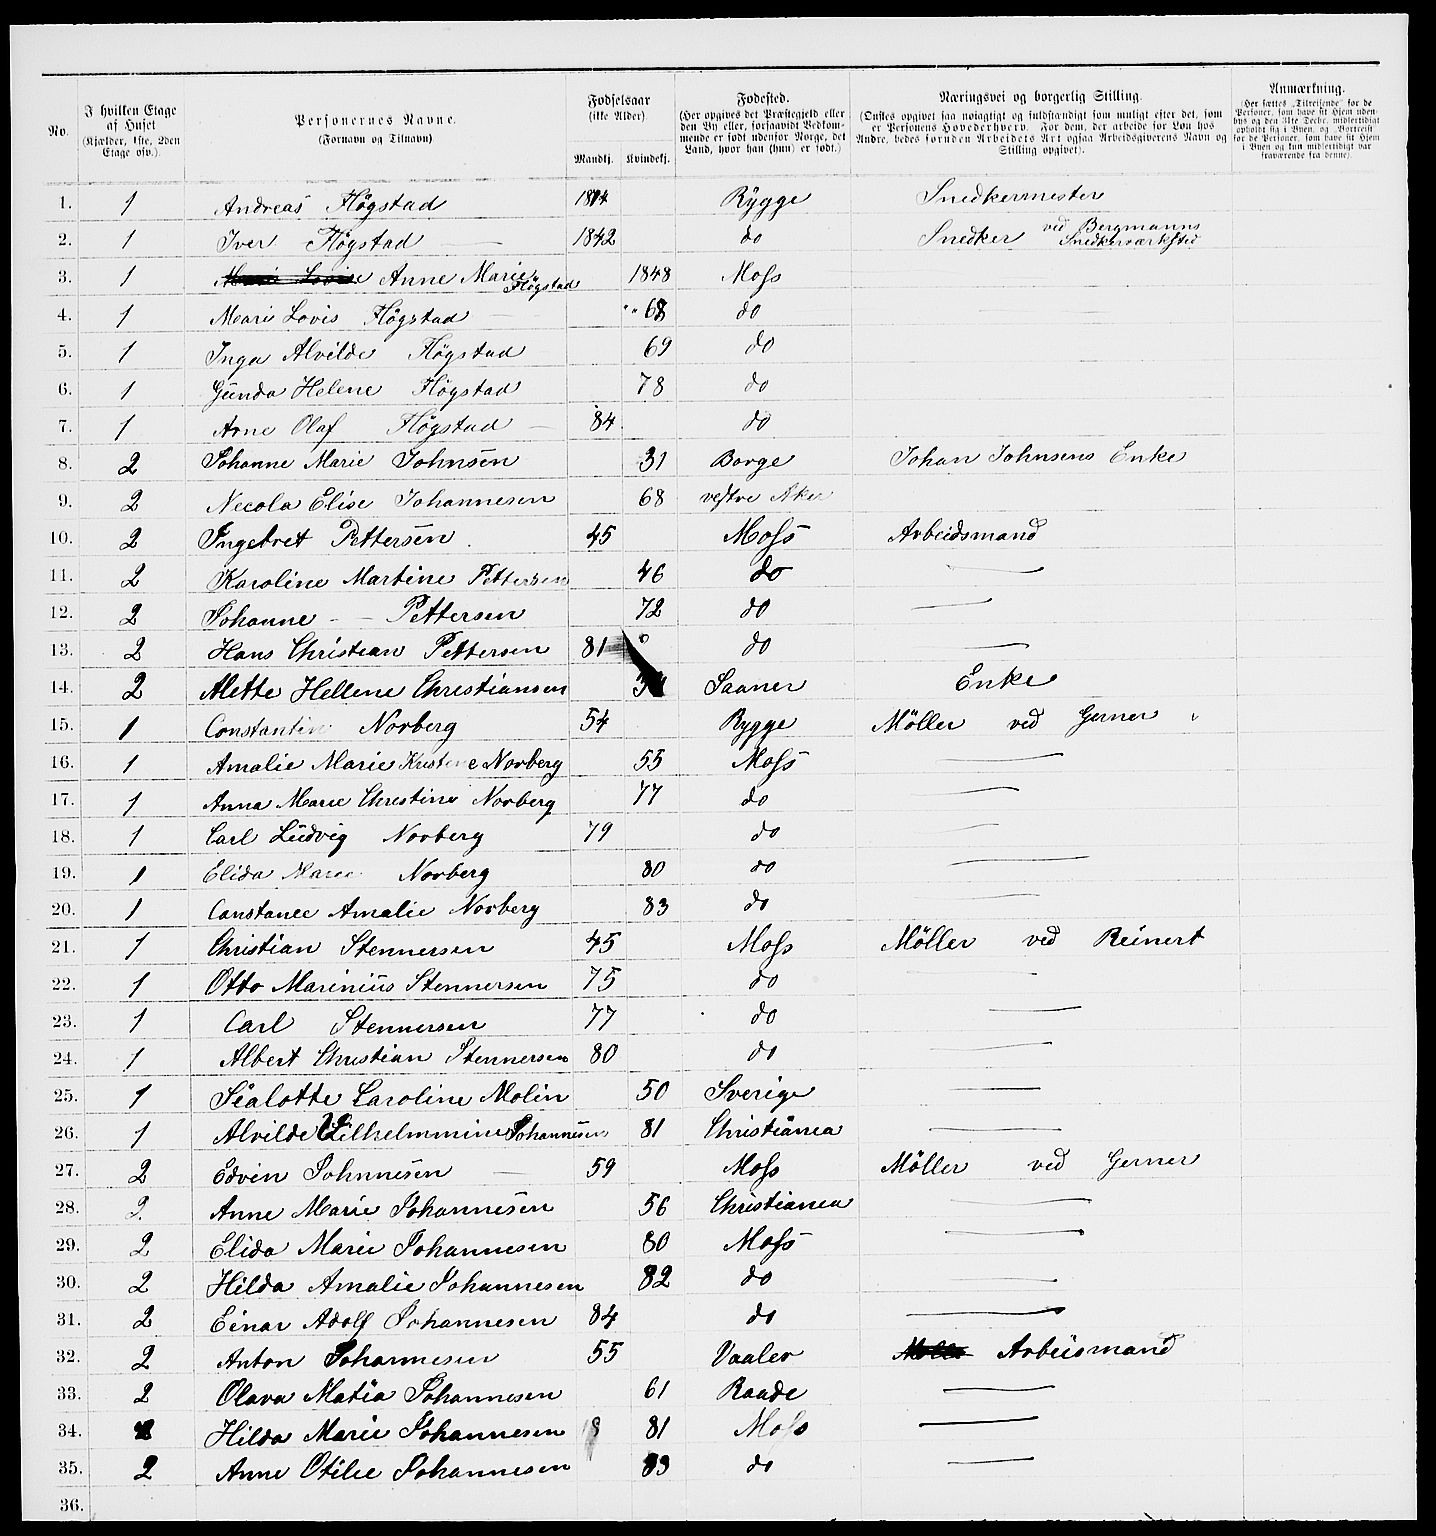 No.
I hvilken Etage af Huset (Kjælder, 1ste, 2den Etage osv.).
Personernes Navne. (Fornavn og Tilnavn)
Fødselsaar (ikke Alder). Mandkj. Kvindekj.
Fødested. (Her opgives det Præstegjeld eller den By eller, forsaavidt Vedkommende er født udenfor Norge, det Land, hvor han (hun) er født.)
Næringsvei og borgerlig Stilling. (Ønskes opgivet saa nøiagtigt og fuldstændigt som muligt efter det, som er Personens Hovederhverv. For dem, der arbeide for Løn hos Andre, bedes foruden Arbeidets Art ogsaa Arbeidsgiverens Navn og Stilling opgivet).
Anmærkning. (Her sættes „Tilreisende" for de Personer, som have sit Hjem udenbys og den 31te Decbr. midlertidigt ophold sig i Byen, og „Bortreist" for de Personer, som have sit Hjem i Byen og kun midlertidigt var fraværende fra denne).
1. 1 Andreas Högstad Rygge Snedkermester
2. 1 Iver Högstad — 1842 do Snedker ved Bergmanns Snedkerværksted
3. 1 Marie Lovise Anne Marie Högstad 1848 Moss
4. 1 Marie Lovis Högstad " " 68 do
5. 1 Inga Alvilde Högstad 69 do
6. 1 Gunda Helene Högstad 78 do
7. 1 Arne Olaf Högstad — 84. do
8. 2 Johanne Marie Johnsen 31 Borge Johan Johnsens Enke
9. 2 Necola Elise Johannesen 68 vestre Aker
10. 2 Ingebret Pettersen. 45 Moss Arbeidsmand
11. 2 Karoline Martine Pettersen 46 do —
12. 2 Johanne - — Pettersen 72 do —
13. 2 Hans Christian Pettersen 81 do —
14. 2 Alette Hellene Christiansen Saaner Enke
15. 1 Constantin Norberg 54 Rygge Möller ved Gerner
16. 1 Amalie Marie Kristene Norberg 55 Moss —
17. 1 Anna Marie Christine Norberg 77 do —
18. 1 Carl Ludvig Norberg 79 do —
19. 1 Elida Marie Norberg 80 do —
20. 1 Constance Amalie Norberg 83 do —
21. 1 Christian Stennersen 45 Moss Möller ved Reinert
22. 1 Otto Marinius Stennersen 75 do —
23. 1 Carl Stennersen 77 do —
24. 1 Albert Christian Stennersen 80 do —
25. 1 Sialotte Caroline Molin 50 Sverige —
26. 1 Alvilde Vilhelmmine Johannesen 81 Christiania —
27. 2 Edvin Johnnesen — 59 Moss Möller ved Gerner
28. 2. Anne Marie Johannesen 56 Christiania —
29. 2 Elida Marie Johannesen 80 Moss —
30. 2 Hilda Amalie Johannesen 82 do —
31. 2 Einar Adolf Johannesen 84 do —
32. 2 Anton Johannesen 55 Vaaler Möller Arbeismand
33. 2 Olava Matia Johannesen 61 Raade —
34. 2 Hilda Marie Johannesen 81 Moss —
35. 2 Anne Otilie Johannesen 83 do —
36.